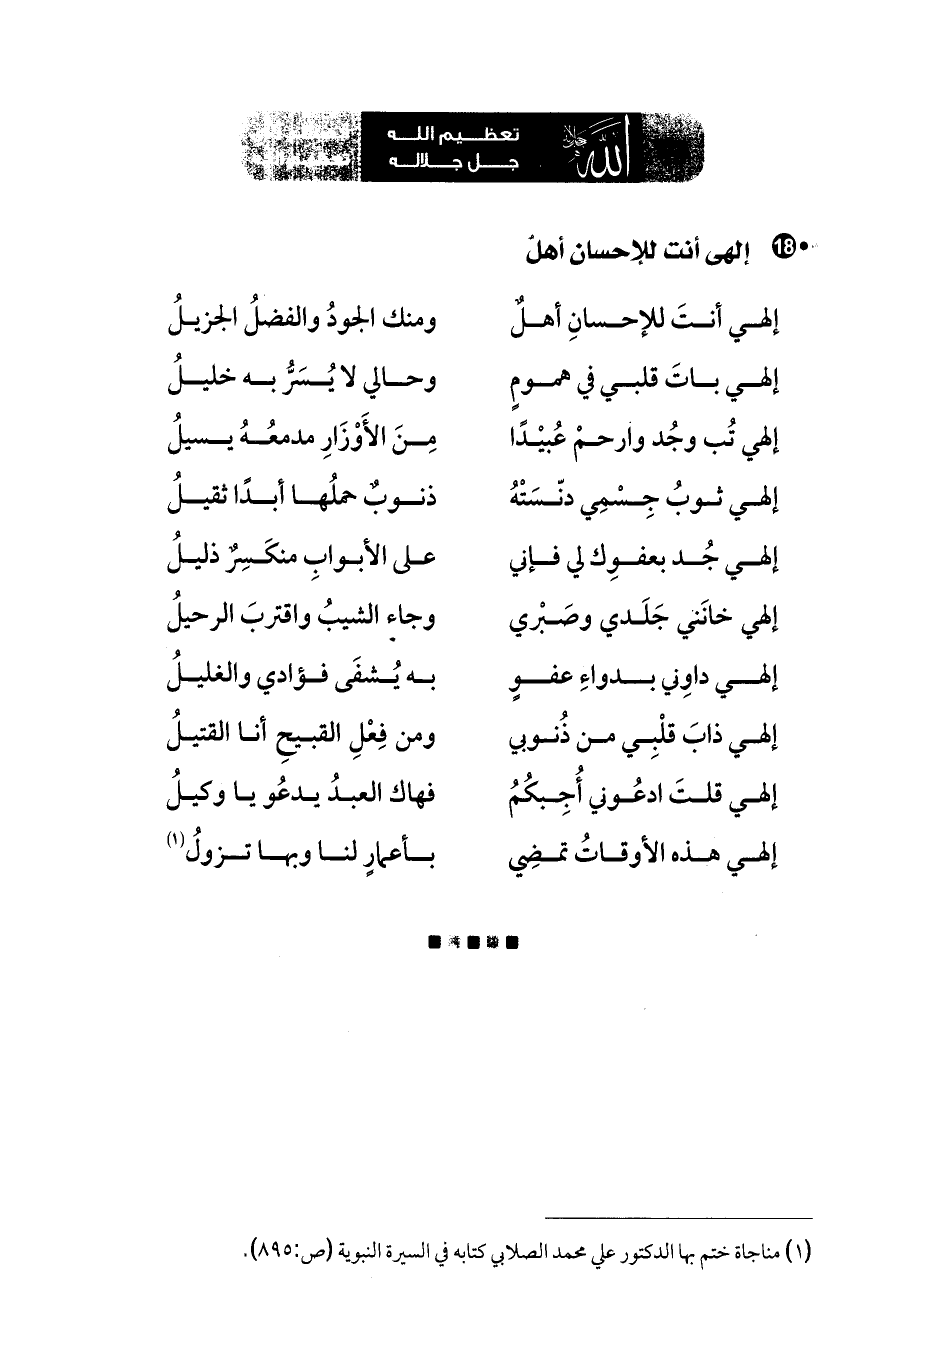 تعظيم الله
جل جلاله
الله جل جلاله
18 إلهي أنت للإحسان أهلٌ
إلهي أنتَ للإحسانِ أهلٌ ومنك الجودُ والفضلُ الجزيلُ
إلهي باتَ قلبي في همومٍ وحالي لا يُسَرُّ به خليلُ
إلهي تُب وجُد وارحمْ عُبَيْدًا مِنَ الأَوْزَارِ مدمعُهُ يسيلُ
إلهي ثوبُ جِسْمِي دنّسَتْهُ ذنوبٌ حملُها أبدًا ثقيلُ
إلهي جُد بعفوِك لي فإني على الأبوابِ منكَسِرٌ ذليلُ
إلهي خانَني جَلَدي وصَبْري وجاء الشيبُ واقتربَ الرحيلُ
إلهي داوِني بدواءِ عفوٍ به يُشفَى فؤادي والغليلُ
إلهي ذابَ قلْبِي من ذُنوبي ومن فِعْلِ القبيحِ أنا القتيلُ
إلهي قلتَ ادعُوني أُجِبكُمُ فهاك العبدُ يدعُو يا وكيلُ
إلهي هذه الأوقاتُ تمضِي بأعمارٍ لنا وبها تزولُ(١)
(١) مناجاة ختم بها الدكتور علي محمد الصلابي كتابه في السيرة النبوية (ص:٨٩٥).